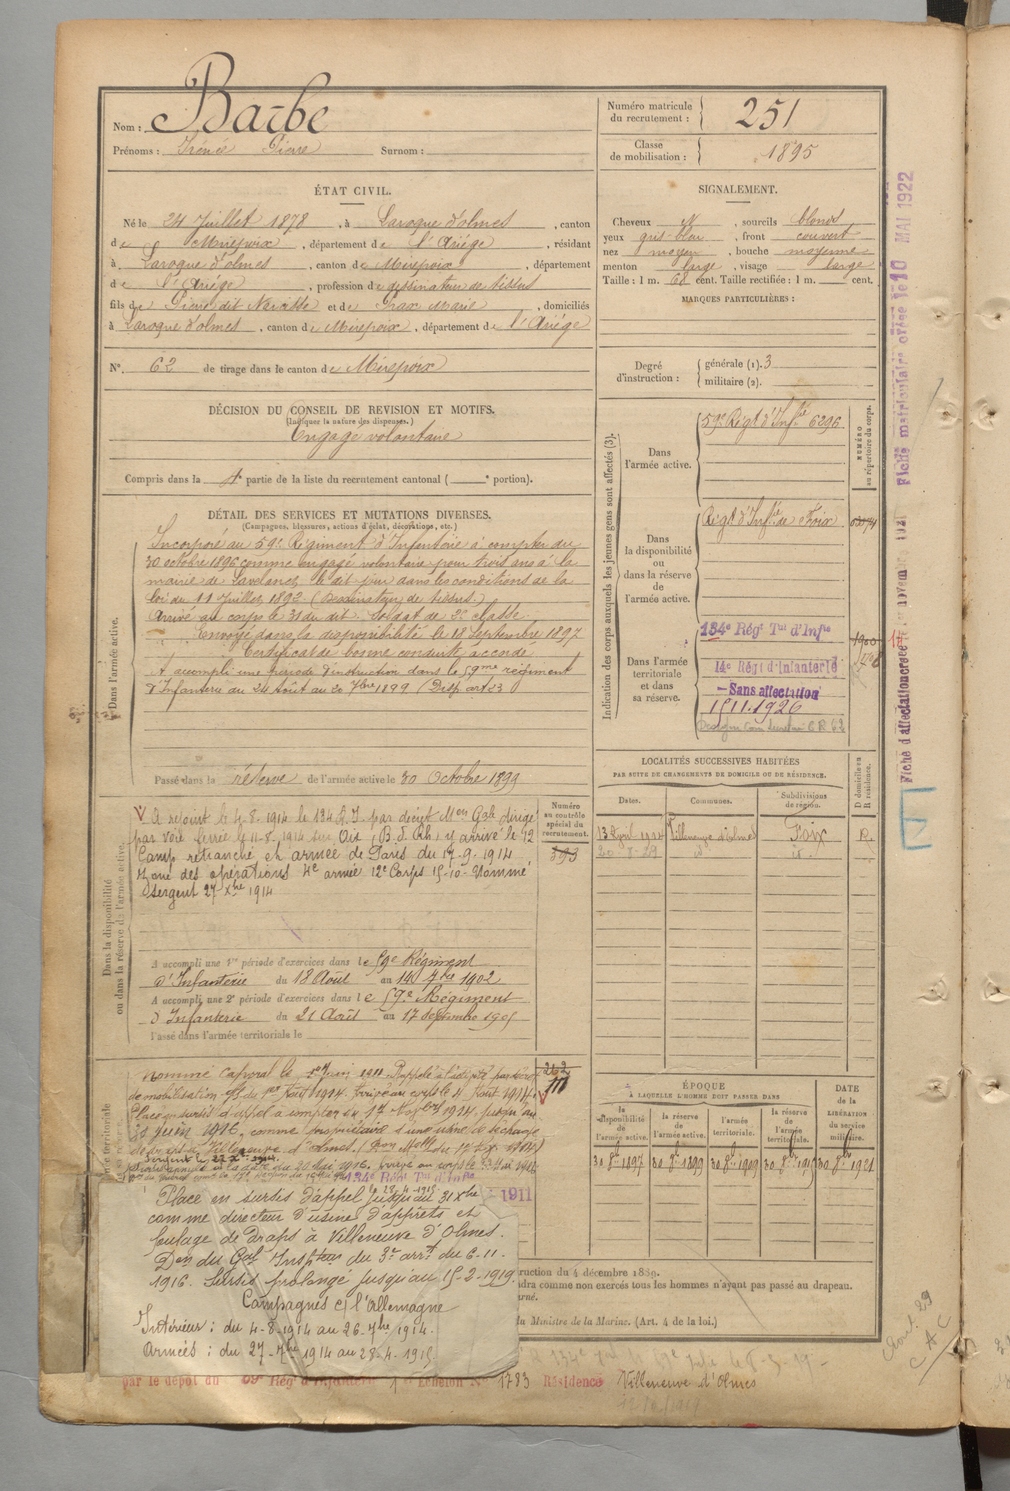 Nom : Barbe
Prénoms : Irénée Pierre Surnom :
Numéro matricule du recrutement : 251
Classe de mobilisation : 1895
ÉTAT CIVIL.
Né le 24 Juillet 1878, à Laroque d'olmes, canton
de Mirepoix, département de l'Ariège, résidant
à Laroque d'olmes, canton de Mirepoix, département
de l'Ariège, profession de dessinateur de tissus
fils de Pierre dit Narcisse et de Prax Marie, domiciliés
à Laroque d'olmes, canton de Mirepoix, département de l'Ariège
N°. 62 de tirage dans le canton de Mirepoix
SIGNALEMENT.
Cheveux N, sourcils blonds
yeux gris-bleu, front couvert
nez moyen, bouche moyenne
menton large, visage large
Taille : 1 m. 68 cent. Taille rectifiée : 1 m. cent.
MARQUES PARTICULIÈRES :
Degré d'instruction :
générale (1). 3
militaire (2).
DÉCISION DU CONSEIL DE REVISION ET MOTIFS.
(Indiquer la nature des dispenses.)
Engagé volontaire
Compris dans la 4e partie de la liste du recrutement cantonal ( e portion).
DÉTAIL DES SERVICES ET MUTATIONS DIVERSES.
(Campagnes, blessures, actions d'éclat, décorations, etc.)
Dans l'armée active.
Incorporé au 59e Régiment d'Infanterie à compter du
30 octobre 1896 comme engagé volontaire pour trois ans à la
mairie de Lavelanet le dit jour dans les conditions de la
loi du 11 Juillet 1892 (Dessinateur de tissus)
Arrivé au corps le 31 du dit. Soldat de 2e classe
Envoyé dans la disponibilité le 18 Septembre 1897
Certificat de bonne conduite accordé
A accompli une période d'instruction dans le 59me régiment
d'Infanterie du 24 Août au 20 7bre 1899 (Disp. art 23
Passé dans la réserve de l'armée active le 30 Octobre 1899
Indication des corps auxquels les jeunes gens sont affectés (3).
NUMÉRO au répertoire du corps.
Dans l'armée active.
59e Régt d'Infie 6296
Dans la disponibilité ou dans la réserve de l'armée active.
Régt d'Infie de Foix
Dans l'armée territoriale et dans sa réserve.
134e Régt Tal d'Infie
14e Régt d'Infanterie
Sans affectation
15.11.1926
Fiche matriculaire créée le 10 MAI 1922
Dans la disponibilité ou dans la réserve de l'armée active.
Numéro au contrôle spécial du recrutement.
593
A rejoint le 4-8-1914 le 134 R.I. par décret Mon Gale dirigé
par voie ferrée le 11-8-1914 sur (B. d. Rh.) y arrive le 12
Camp retranché et armée de Paris du 17-9-1914
Zone des opérations 4e armée 12e Corps 15-10- Nommé
Sergent 27 Xbre 1914
A accompli une 1re période d'exercices dans le 59e Régiment
d'Infanterie du 18 Août au 14 7bre 1902
A accompli une 2e période d'exercices dans le 59e Régiment
d'Infanterie du 21 Août au 17 Septembre 1905
Passé dans l'armée territoriale le
LOCALITÉS SUCCESSIVES HABITÉES
PAR SUITE DE CHANGEMENTS DE DOMICILE OU DE RÉSIDENCE.
Dates. Communes. Subdivisions de région. D domicile ou R résidence.
Villeneuve d'olmes Foix R.
20-8-29 id id
Nommé caporal le
de mobilisation Gle du 1er Août 1914. Arrivé au corps le 4 Août 1914.
Placé en sursis d'appel à compter du
30 juin 1916, comme propriétaire d'une usine
de Villeneuve d'Olmes
134e Régt Tal d'Infie
1911
Placé en sursis d'appel jusqu'au 31 Xbre
comme directeur d'usine d'apprêts et
foulage de draps à Villeneuve d'Olmes.
Don du Gal Inspteur du 3e arrt du 6-11-
1916. Sursis prolongé jusqu'au 15-2-1919.
Campagnes c/ l'Allemagne
Intérieur : du 4-8-1914 au 26-7bre 1914.
Armées : du 27-7bre 1914 au 28-4-1915
ÉPOQUE
À LAQUELLE L'HOMME DOIT PASSER DANS
la disponibilité de l'armée active. la réserve de l'armée active. l'armée territoriale. la réserve de l'armée territoriale.
DATE de la LIBÉRATION du service militaire.
30 8bre 1897 30 8bre 1899 30 8bre 1909 30 8bre 1915 30 8bre 1921
ruction du 4 décembre 1889.
dra comme non exercés tous les hommes n'ayant pas passé au drapeau.
du Ministre de la Marine. (Art. 4 de la loi.)
par le dépôt du 59e Rég d'Infanterie Echelon N° 1783 Résidence Villeneuve d'Olmes